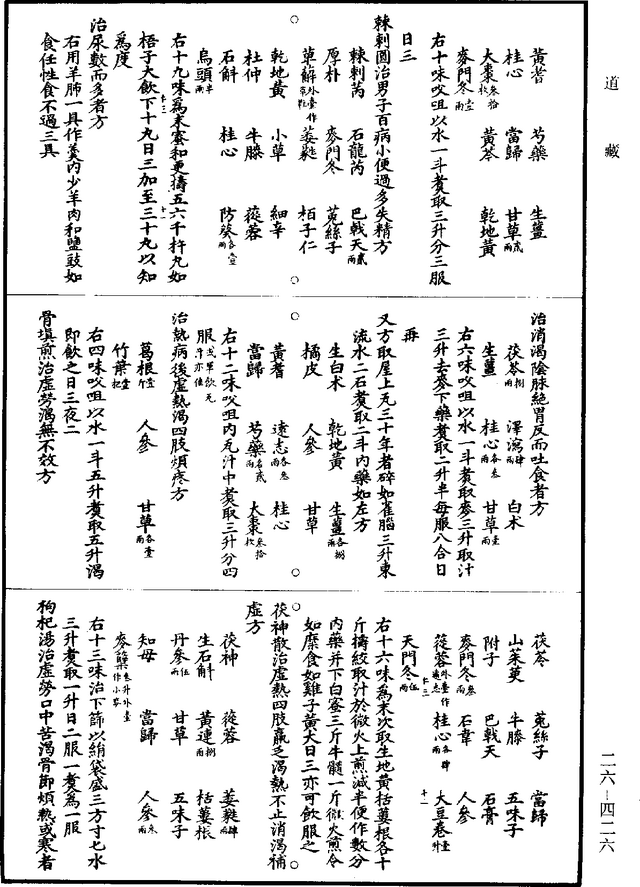 道藏
黃耆 芍藥 生薑
桂心 當歸 甘草各貳兩
大棗叁拾枚 黃芩 乾地黃
麥門冬各壹兩
右十味㕮咀以水一斗煮取三升分三服
日三
棘刺圓治男子百病小便過多失精方
棘刺 石龍芮 巴戟天貳兩
厚朴 麥門冬 菟絲子
萆薢外臺作 葳蕤 柏子仁
乾地黃 小草 細辛
杜仲 牛膝 蓯蓉
石斛 桂心 防葵各壹兩
烏頭半兩
右十九味為末蜜和更擣五六千杵丸如
梧子大飲下十丸日三加至三十丸以知
為度
治尿數而多者方
右用羊肺一具作羹內少羊肉和鹽豉如
食任性食不過三具
治消渴陰脉絕胃反而吐食者方
茯苓捌兩 澤瀉肆兩 白术
生薑 桂心各叁兩 甘草壹兩
右六味㕮咀以水一斗煮取麥三升取汁
三升去麥下藥煮取二升半每服八合日
再
又方取屋上瓦三十年者碎如雀腦三升東
流水二石煮取二斗內藥如左方
生白术 乾地黃 生薑各捌兩
橘皮 人參 甘草
黃耆 遠志各叁兩 桂心
當歸 芍藥各貳兩 大棗叁拾枚
右十二味㕮咀內瓦汁中煮取三升分四
服或單飲瓦汁亦佳
治熱病後虛熱渴四肢煩疼方
葛根壹斤 人參 甘草各壹兩
竹葉壹把
右四味㕮咀以水一斗五升煮取五升渴
即飲之日三夜二
骨填煎治虛勞渴無不效方
茯苓 菟絲子 當歸
山茱萸 牛膝 五味子
附子 巴戟天 石膏
麥門冬叁兩 石韋 人參
蓯蓉外臺作遠志 桂心各肆兩 大豆卷壹升
天門冬伍兩
右十六味為末次取生地黃栝蔞根各十
斤擣絞取汁於微火上煎減半便作數分
內藥并下白蜜三斤牛髓一斤微火煎令
如糜食如雞子黃大日三亦可飲服之
茯神散治虛熱四肢羸乏渴熱不止消渴補
虛方
茯神 蓯蓉 葳蕤肆兩
生石斛 黃連捌兩 栝蔞根
丹參伍兩 甘草 五味子
知母 當歸 人參各叁兩
麥蘗叁升外臺作小麥
右十三味治下篩以絹袋盛三方寸匕水
三升煮取一升日二服一煮為一服
枸杞湯治虛勞口中苦渴骨節煩熱或寒者
二六—四二六